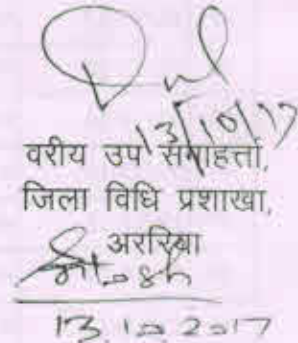 13/10/17
वरीय उप समाहर्त्ता,
जिला विधि प्रशाखा,
अररिया
13.10.2017